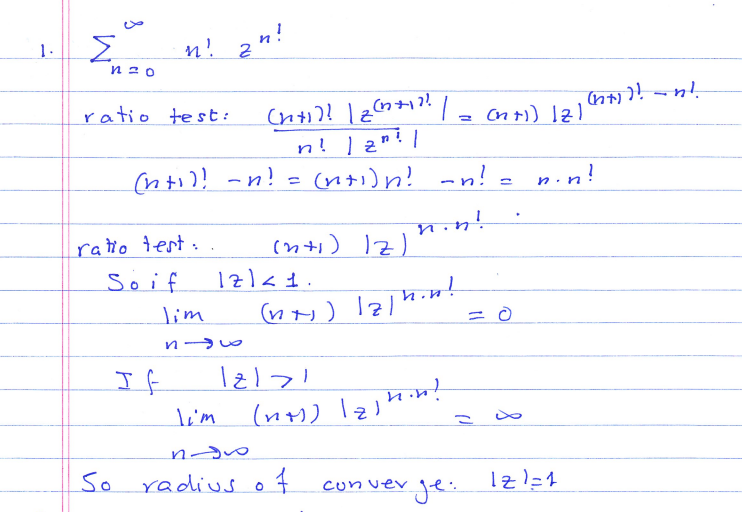 1. ∞
∑ n! z^{n!}
n=0
ratio test: (n+1)! |z^{(n+1)!}| / n! |z^{n!}| = (n+1) |z|^{(n+1)! - n!}
(n+1)! - n! = (n+1) n! - n! = n·n!
ratio test: (n+1) |z|^{n·n!}
So if |z| < 1.
lim (n+1) |z|^{n·n!} = 0
n→∞
If |z| > 1
lim (n+1) |z|^{n·n!} = ∞
n→∞
So radius of converge: |z|=1